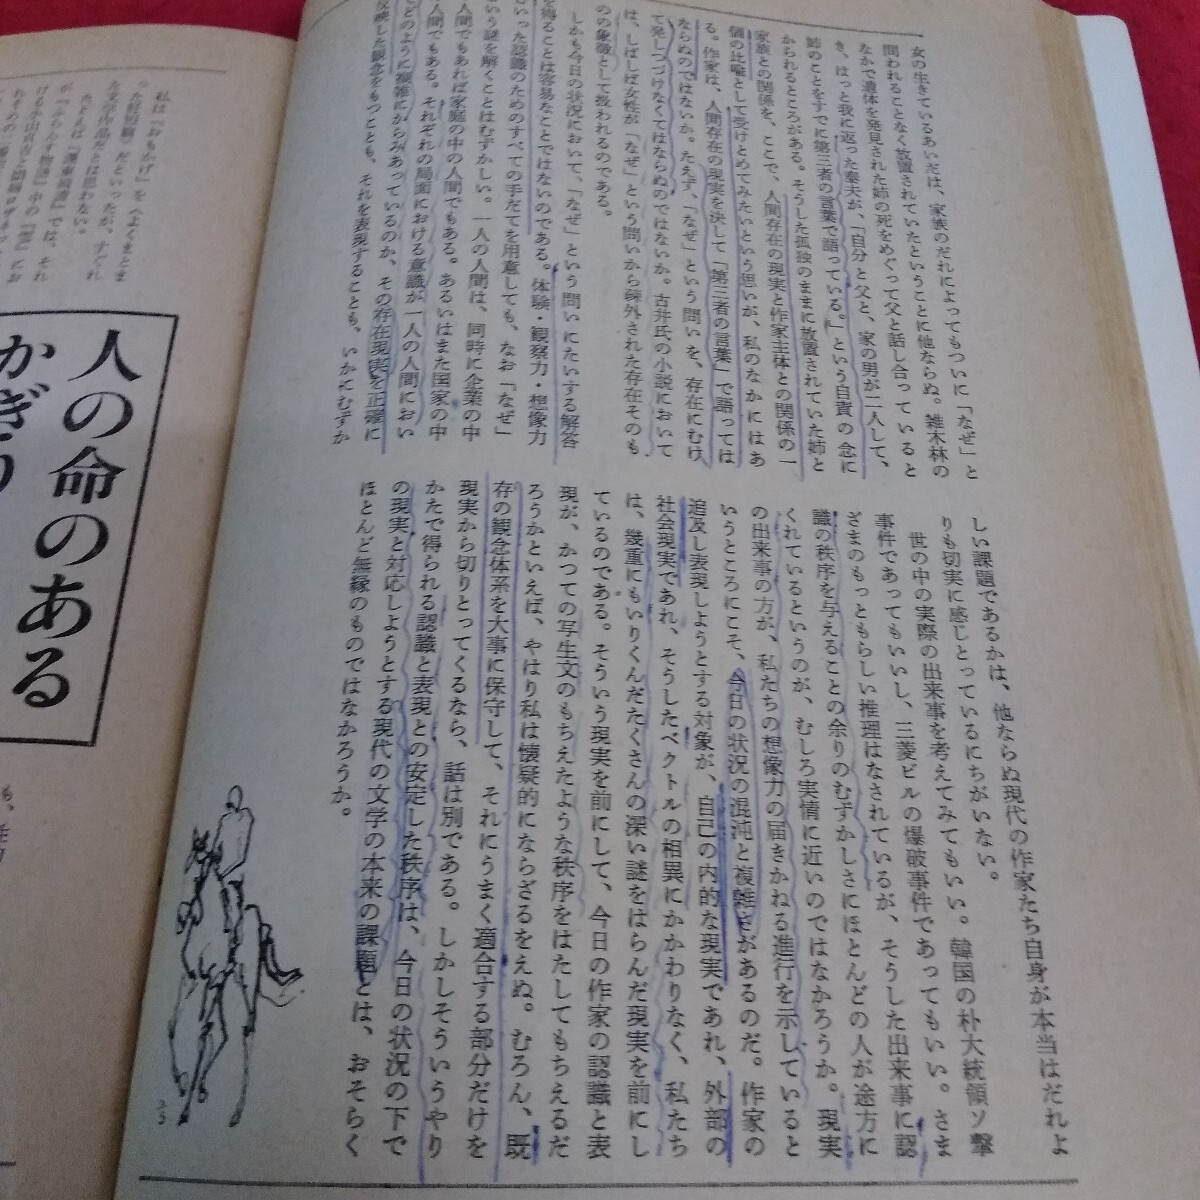 女の生きているあいだは、家族のだれによってもついに「なぜ」と
問われることなく放置されていたということに他ならぬ。雑木林の
なかで遺体を発見された姉の死をめぐって父と話し合っていると
き、はっと我に返った泰夫が、「自分と父と、家の男が二人して、
姉のことをすでに第三者の言葉で語っている。」という自責の念に
かられるところがある。そうした孤独のままに放置されていた姉と
家族との関係を、ここで、人間存在の現実と作家主体との関係の一
個の比喩として受けとめてみたいという思いが、私のなかにはあ
る。作家は、人間存在の現実を決して「第三者の言葉」で語っては
ならぬのではないか。たえず、「なぜ」という問いを、存在にむけ
て発しつづけなくてはならぬのではないか。古井氏の小説において
は、しばしば女性が「なぜ」という問いから疎外された存在そのも
のの象徴として扱われるのである。
しかも今日の状況において、「なぜ」という問いにたいする解答
を得ることは容易なことではないのである。体験・観察力・想像力
といった認識のためのすべての手だてを用意しても、なお「なぜ」
という謎を解くことはむずかしい。一人の人間は、同時に企業の中
の人間でもあれば家庭の中の人間でもある。あるいはまた国家の中
の人間でもある。それぞれの局面における意識が一人の人間におい
てどのように複雑にからみあっているのか、その存在現実を正確に
反映した観念をもつことも、それを表現することも、いかにむずか
しい課題であるかは、他ならぬ現代の作家たち自身が本当はだれよ
りも切実に感じとっているにちがいない。
世の中の実際の出来事を考えてみてもいい。韓国の朴大統領ソ撃
事件であってもいいし、三菱ビルの爆破事件であってもいい。さま
ざまのもっともらしい推理はなされているが、そうした出来事に認
識の秩序を与えることの余りのむずかしさにほとんどの人が途方に
くれているというのが、むしろ実情に近いのではなかろうか。現実
の出来事の方が、私たちの想像力の届きかねる進行を示していると
いうところにこそ、今日の状況の混沌と複雑さがあるのだ。作家の
追及し表現しようとする対象が、自己の内的な現実であれ、外部の
社会現実であれ、そうしたベクトルの相異にかかわりなく、私たち
は、幾重にもいりくんだたくさんの深い謎をはらんだ現実を前にし
ているのである。そういう現実を前にして、今日の作家の認識と表
現が、かつての写生文のもちえたような秩序をはたしてもちえるだ
ろうかといえば、やはり私は懐疑的にならざるをえぬ。むろん、既
存の観念体系を大事に保守して、それにうまく適合する部分だけを
現実から切りとってくるなら、話は別である。しかしそういうやり
かたで得られる認識と表現との安定した秩序は、今日の状況の下で
の現実と対応しようとする現代の文学の本来の課題とは、おそらく
ほとんど無縁のものではなかろうか。
人の命のある
かぎり
私は『おもかげ』を〈よくまとま
った好短篇〉だといったが、すぐれ
た文学作品だとは思わない。
たとえば『濹東綺譚』では、それ